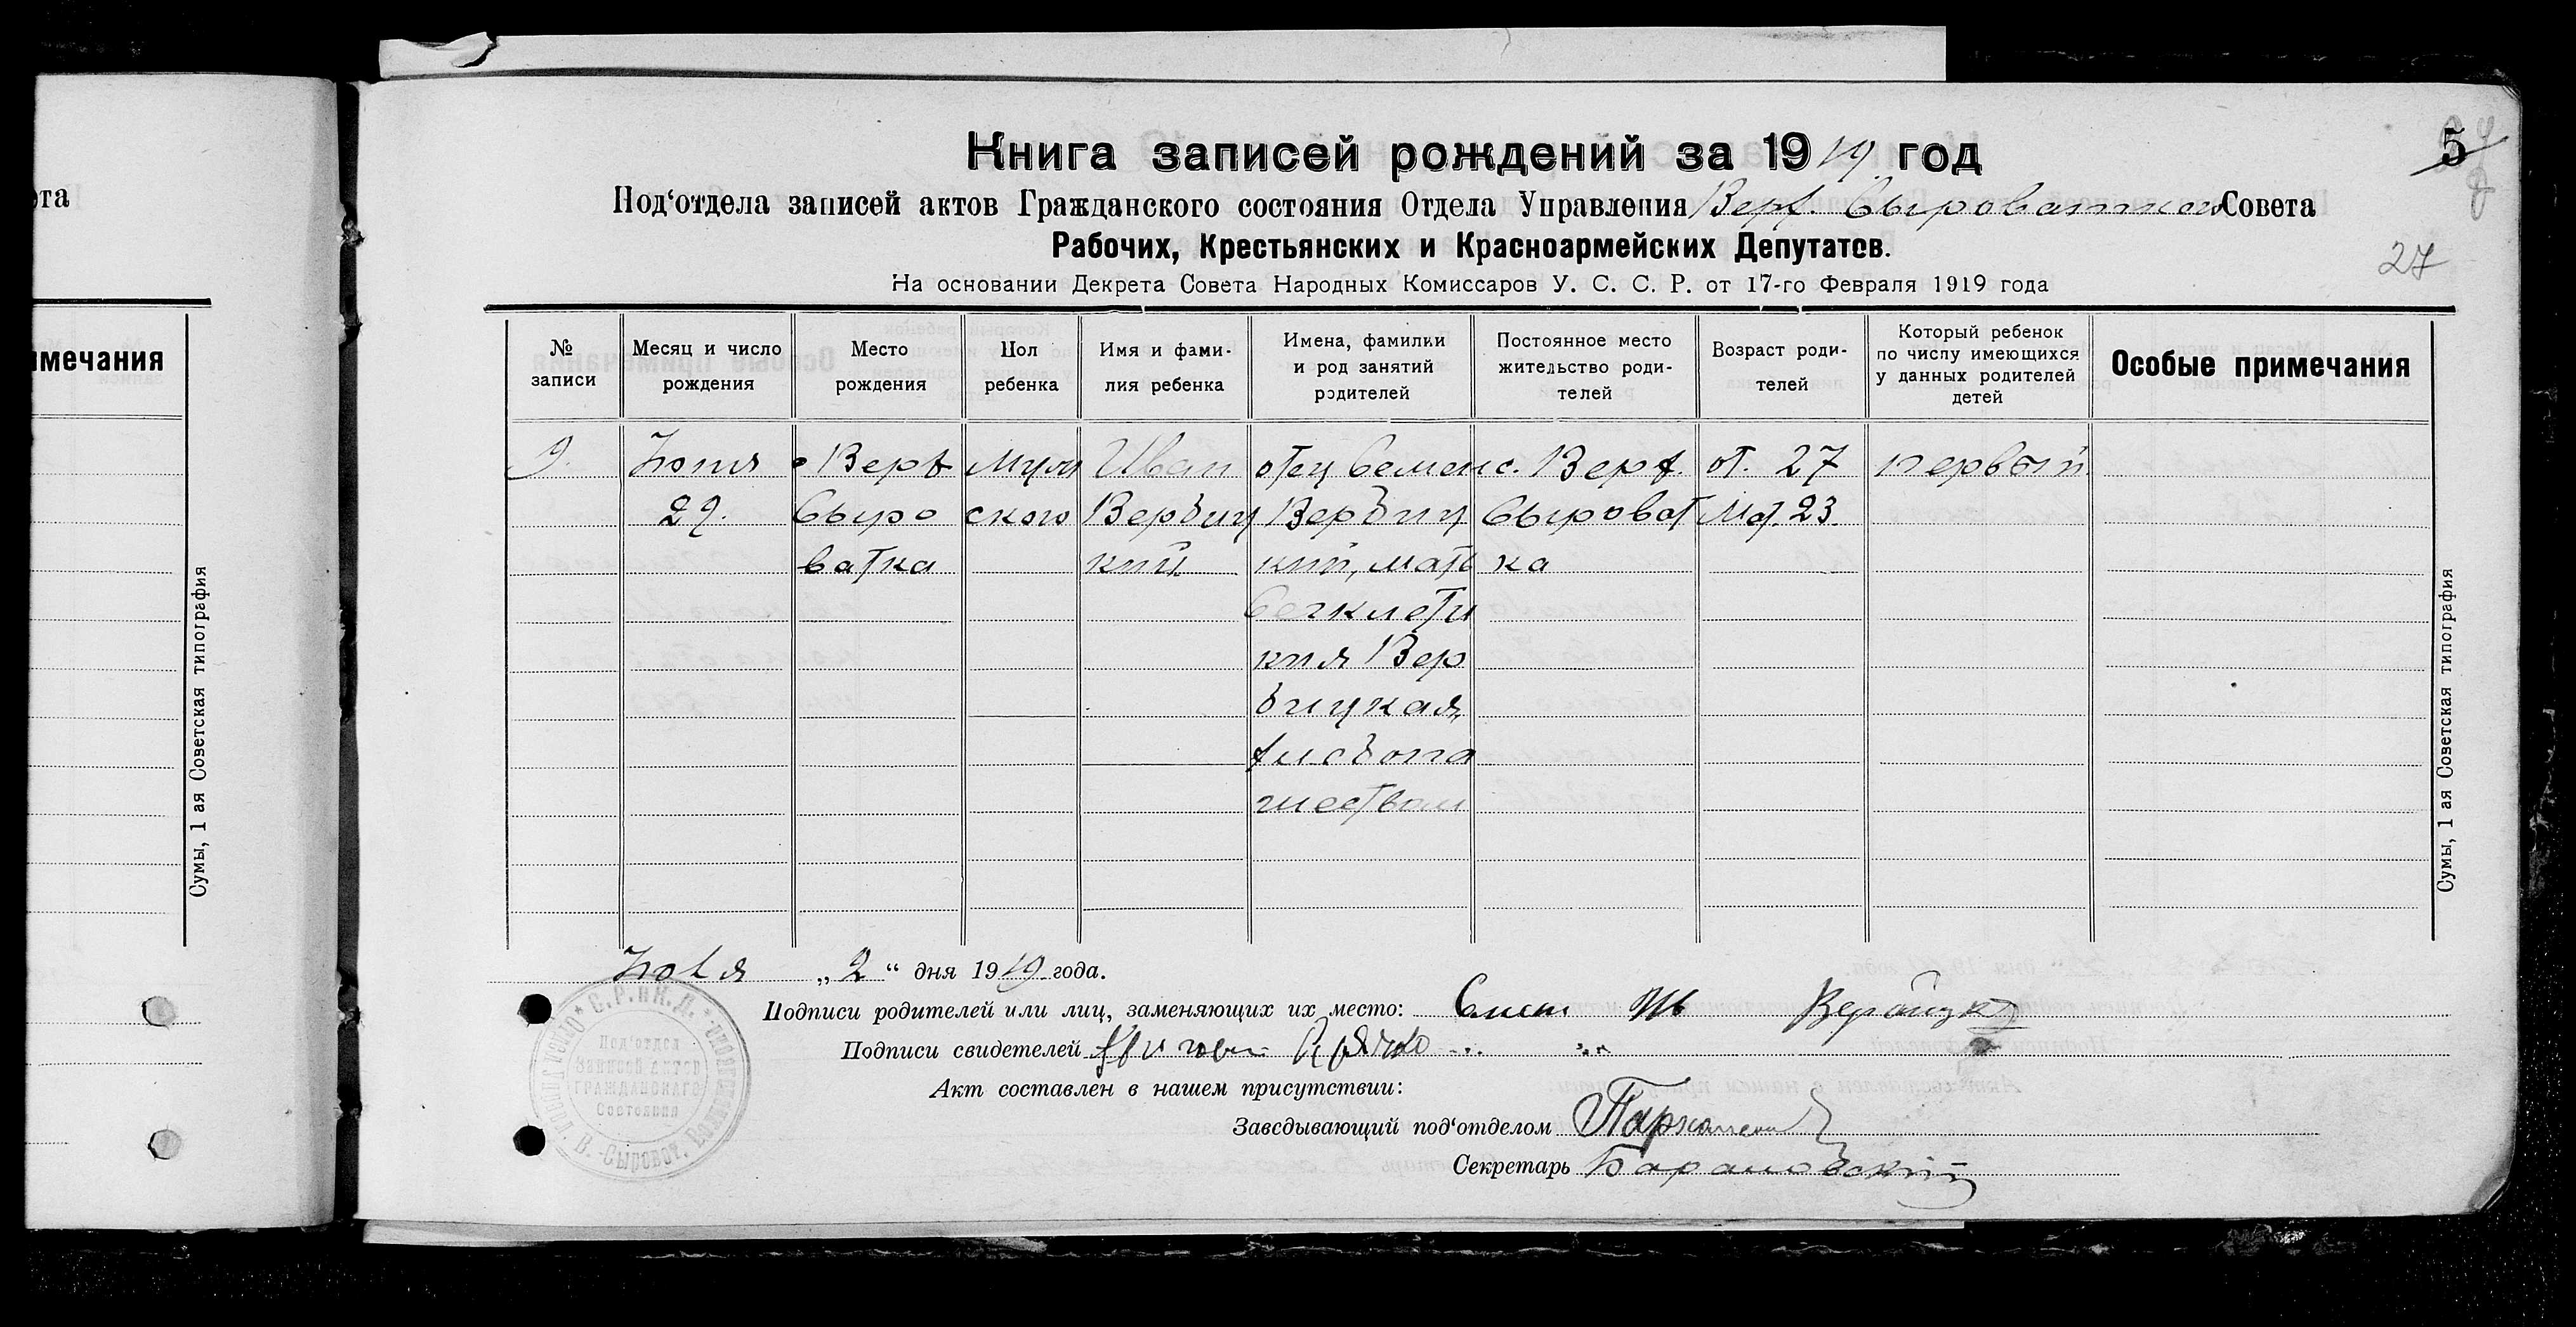 Книга записей рождений за 1919 год
5
Под'отдела записей актов Гражданского состояния Отдела Управления Верх. Сыроватского Совета
Рабочих, Крестьянских и Красноармейских Депутатов.
27
На основании Декрета Совета Народных Комиссаров У. С. С. Р. от 17-го Февраля 1919 года
№ записи
Месяц и число рождения
Место рождения
Пол ребенка
Имя и фами-лия ребенка
Имена, фамилии и род занятий родителей
Постоянное место жительство роди-телей
Возраст роди-телей
Который ребенок по числу имеющихся у данных родителей детей
Особые примечания
9. Июня с Верх Муж Иван отец Семен с. Верх. от. 27 первый
29. Сыро ского Вербиц Вербиц Сыроват Мат. 23.
ватка кий кий, мать ка
кия Вер
бицкая,
хлебопа
шеством
Июля „2“ дня 1919 года.
Подписи родителей или лиц, заменяющих их место: Вербицкий
Подписи свидетелей
Акт составлен в нашем присутствии:
Заведывающий под'отделом
Секретарь Барановский
С. Р. и К. Д.
Под'отдел
Записей актов
ГРАЖДАНСКАГО
Состояния
Сумы, 1 ая Советская типография
ота
имечания
Сумы, 1 ая Советская типография